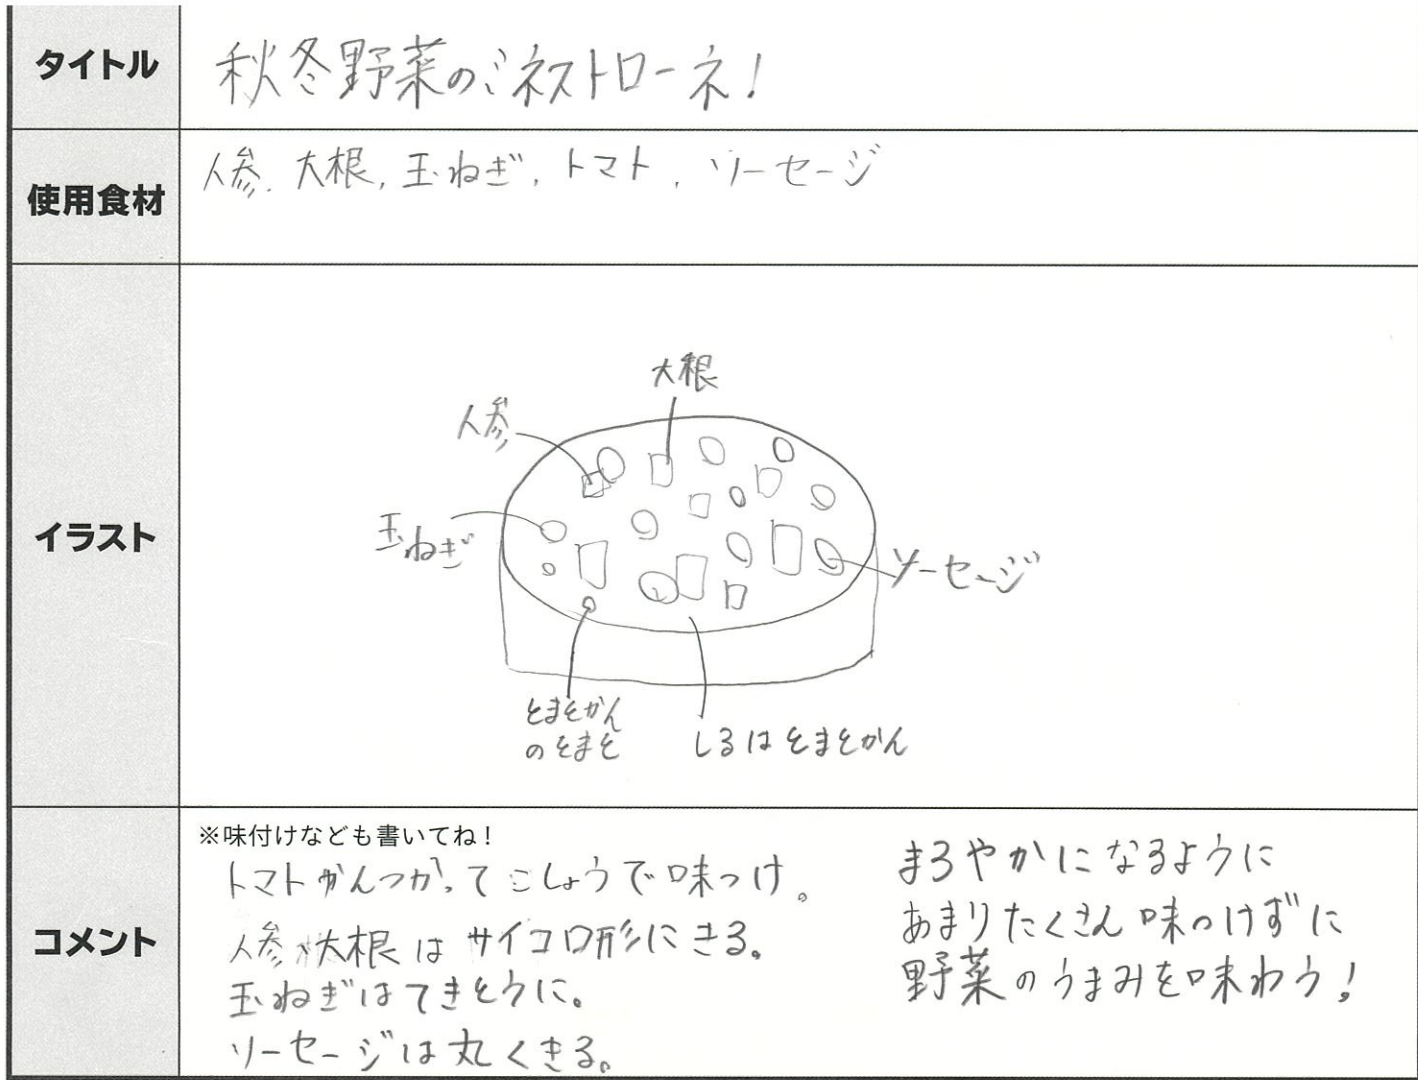 タイトル
秋冬野菜のミネストローネ!
使用食材
人参、大根、玉ねぎ、トマト、ソーセージ
イラスト
大根
人参
玉ねぎ
ソーセージ
とまとかん
のとまと
しるはとまとかん
コメント
※味付けなども書いてね!
トマトかんつかってこしょうで味つけ。
人参 大根はサイコロ形にきる。
玉ねぎはてきとうに。
ソーセージは丸くきる。
まろやかになるように
あまりたくさん味つけずに
野菜のうまみを味わう!